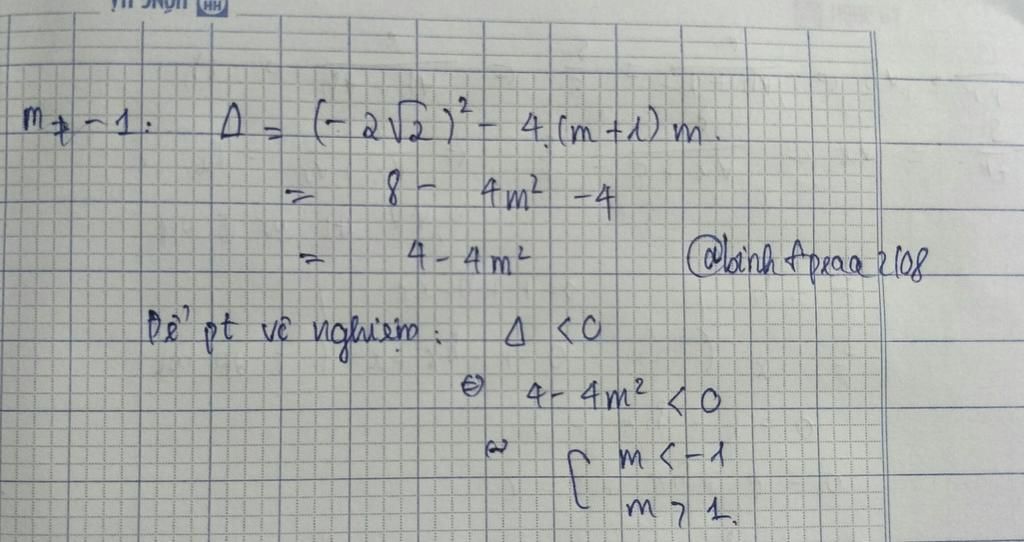 HH
m ≠ -1: Δ = (-2√2)² - 4.(m+1)m.
= 8 - 4m² - 4
= 4 - 4m²
@binhtpxaa2108
Để pt vô nghiệm: Δ < 0
⇔ 4 - 4m² < 0
⇔ { m < -1
m > 1.